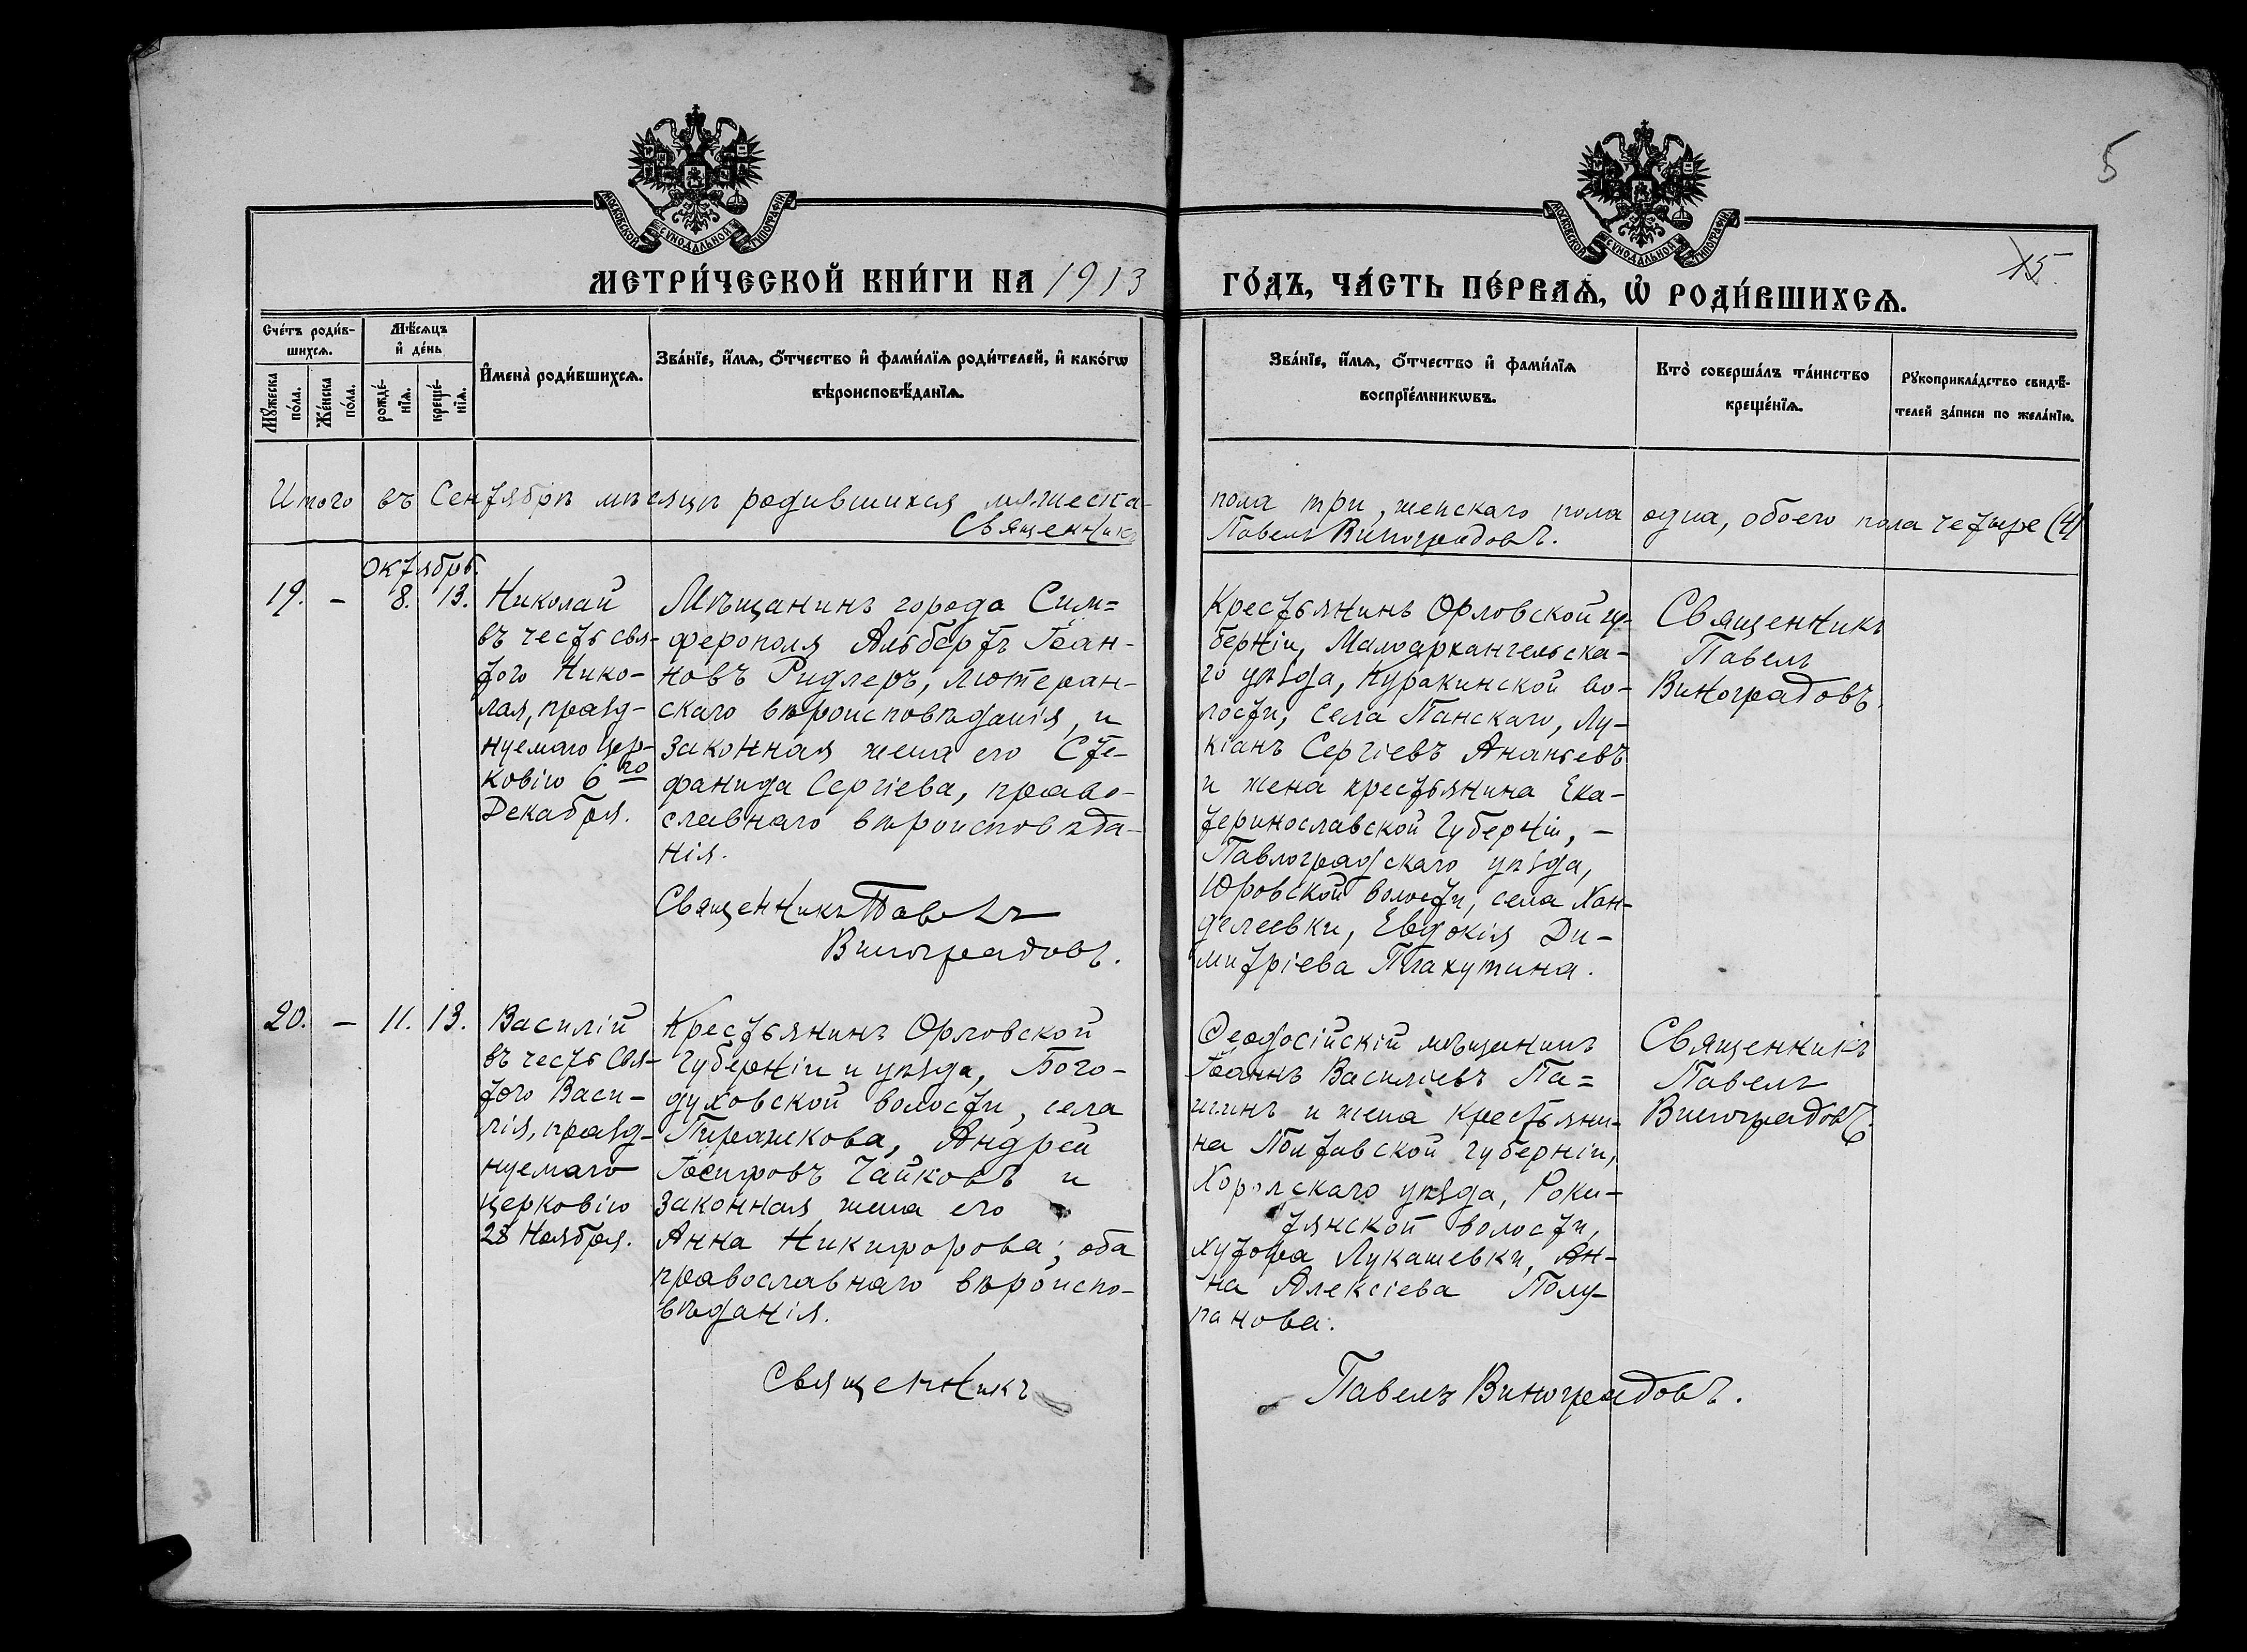 5
МОСКОВСКОЙ СѴНОДАЛЬНОЙ ТИПОГРАФІИ
МОСКОВСКОЙ СѴНОДАЛЬНОЙ ТИПОГРАФІИ
15.
МЕТРИ́ЧЕСКОЙ КНИ́ГИ НА 1913
ГО́ДЪ, ЧА́СТЬ ПЕ́РВАѦ, Ѡ҆ РОДИ́ВШИХСѦ.
Сче́тъ роди́в-
шихсѧ.
Мꙋ́жеска
по́ла.
Же́нска
по́ла.
Мѣ́сѧцъ
и҆ де́нь
рожде́-
нїѧ.
креще́-
нїѧ.
И҆мена̀ роди́вшихсѧ.
Зва́нїе, и҆́мѧ, ѻ҆́тчество и҆ фами́лїѧ роди́телей, и҆ како́гѡ
вѣроисповѣ́данїѧ.
Зва́нїе, и҆́мѧ, ѻ҆́тчество и҆ фами́лїѧ
воспрїе́мникѡвъ.
Кто̀ соверша́лъ та́инство
креще́нїѧ.
Рꙋкоприкла́дство свидѣ́-
телей за́писи по жела́нїю.
Итого въ Сентябрѣ мѣсяцѣ родившихся мужеска-
Священникъ
пола три, женскаго пола одна, обоего пола четыре (4)
Павелъ Виноградовъ.
Октябрь.
19. - 8. 13.
Николай
въ честь свя-
того Нико-
лая, празд-
нуемаго Цер-
ковію 6го
Декабря.
Мѣщанинъ города Сим=
ферополя Альбертъ Іоан-
новъ Ридлеръ, лютеран-
скаго вѣроисповѣданія, и
законная жена его Сте-
фанида Сергіева, право-
славнаго вѣроисповѣда-
нія.
Священникъ Павелъ
Виноградовъ.
Крестьянинъ Орловской гу-
берніи, Малоархангельска-
го уѣзда, Куракинской во-
лости, села Панскаго, Лу-
кіанъ Сергіевъ Ананьевъ
и жена крестьянина Ека-
теринославской Губерніи, -
Павлоградскаго уѣзда,
Юровской волости, села Хан-
делеевки, Евдокія Ди-
митріева Плахутина.
Священникъ
Павелъ
Виноградовъ.
20. - 11. 13.
Василій
въ честь Свя-
того Васи-
лія, празд-
нуемаго
церковію
28 Ноября.
Крестьянинъ Орловской
Губерніи и уѣзда, Бого-
духовской волости, села
Андрей
Іосифовъ Чайковъ и
законная жена его
Анна Никифорова; оба
православнаго вѣроиспо-
вѣданія.
Ѳеодосійскій мѣщанинъ
Іоаннъ Василіевъ Па=
шинъ и жена крестьяни-
на Полтавской губерніи,
Хорольскаго уѣзда, Роки-
тянской волости,
хутора Лукашевки, Ан-
на Алексіева Полу-
панова.
Священникъ
Павелъ
Виноградовъ.
Священникъ
Павелъ Виноградовъ.